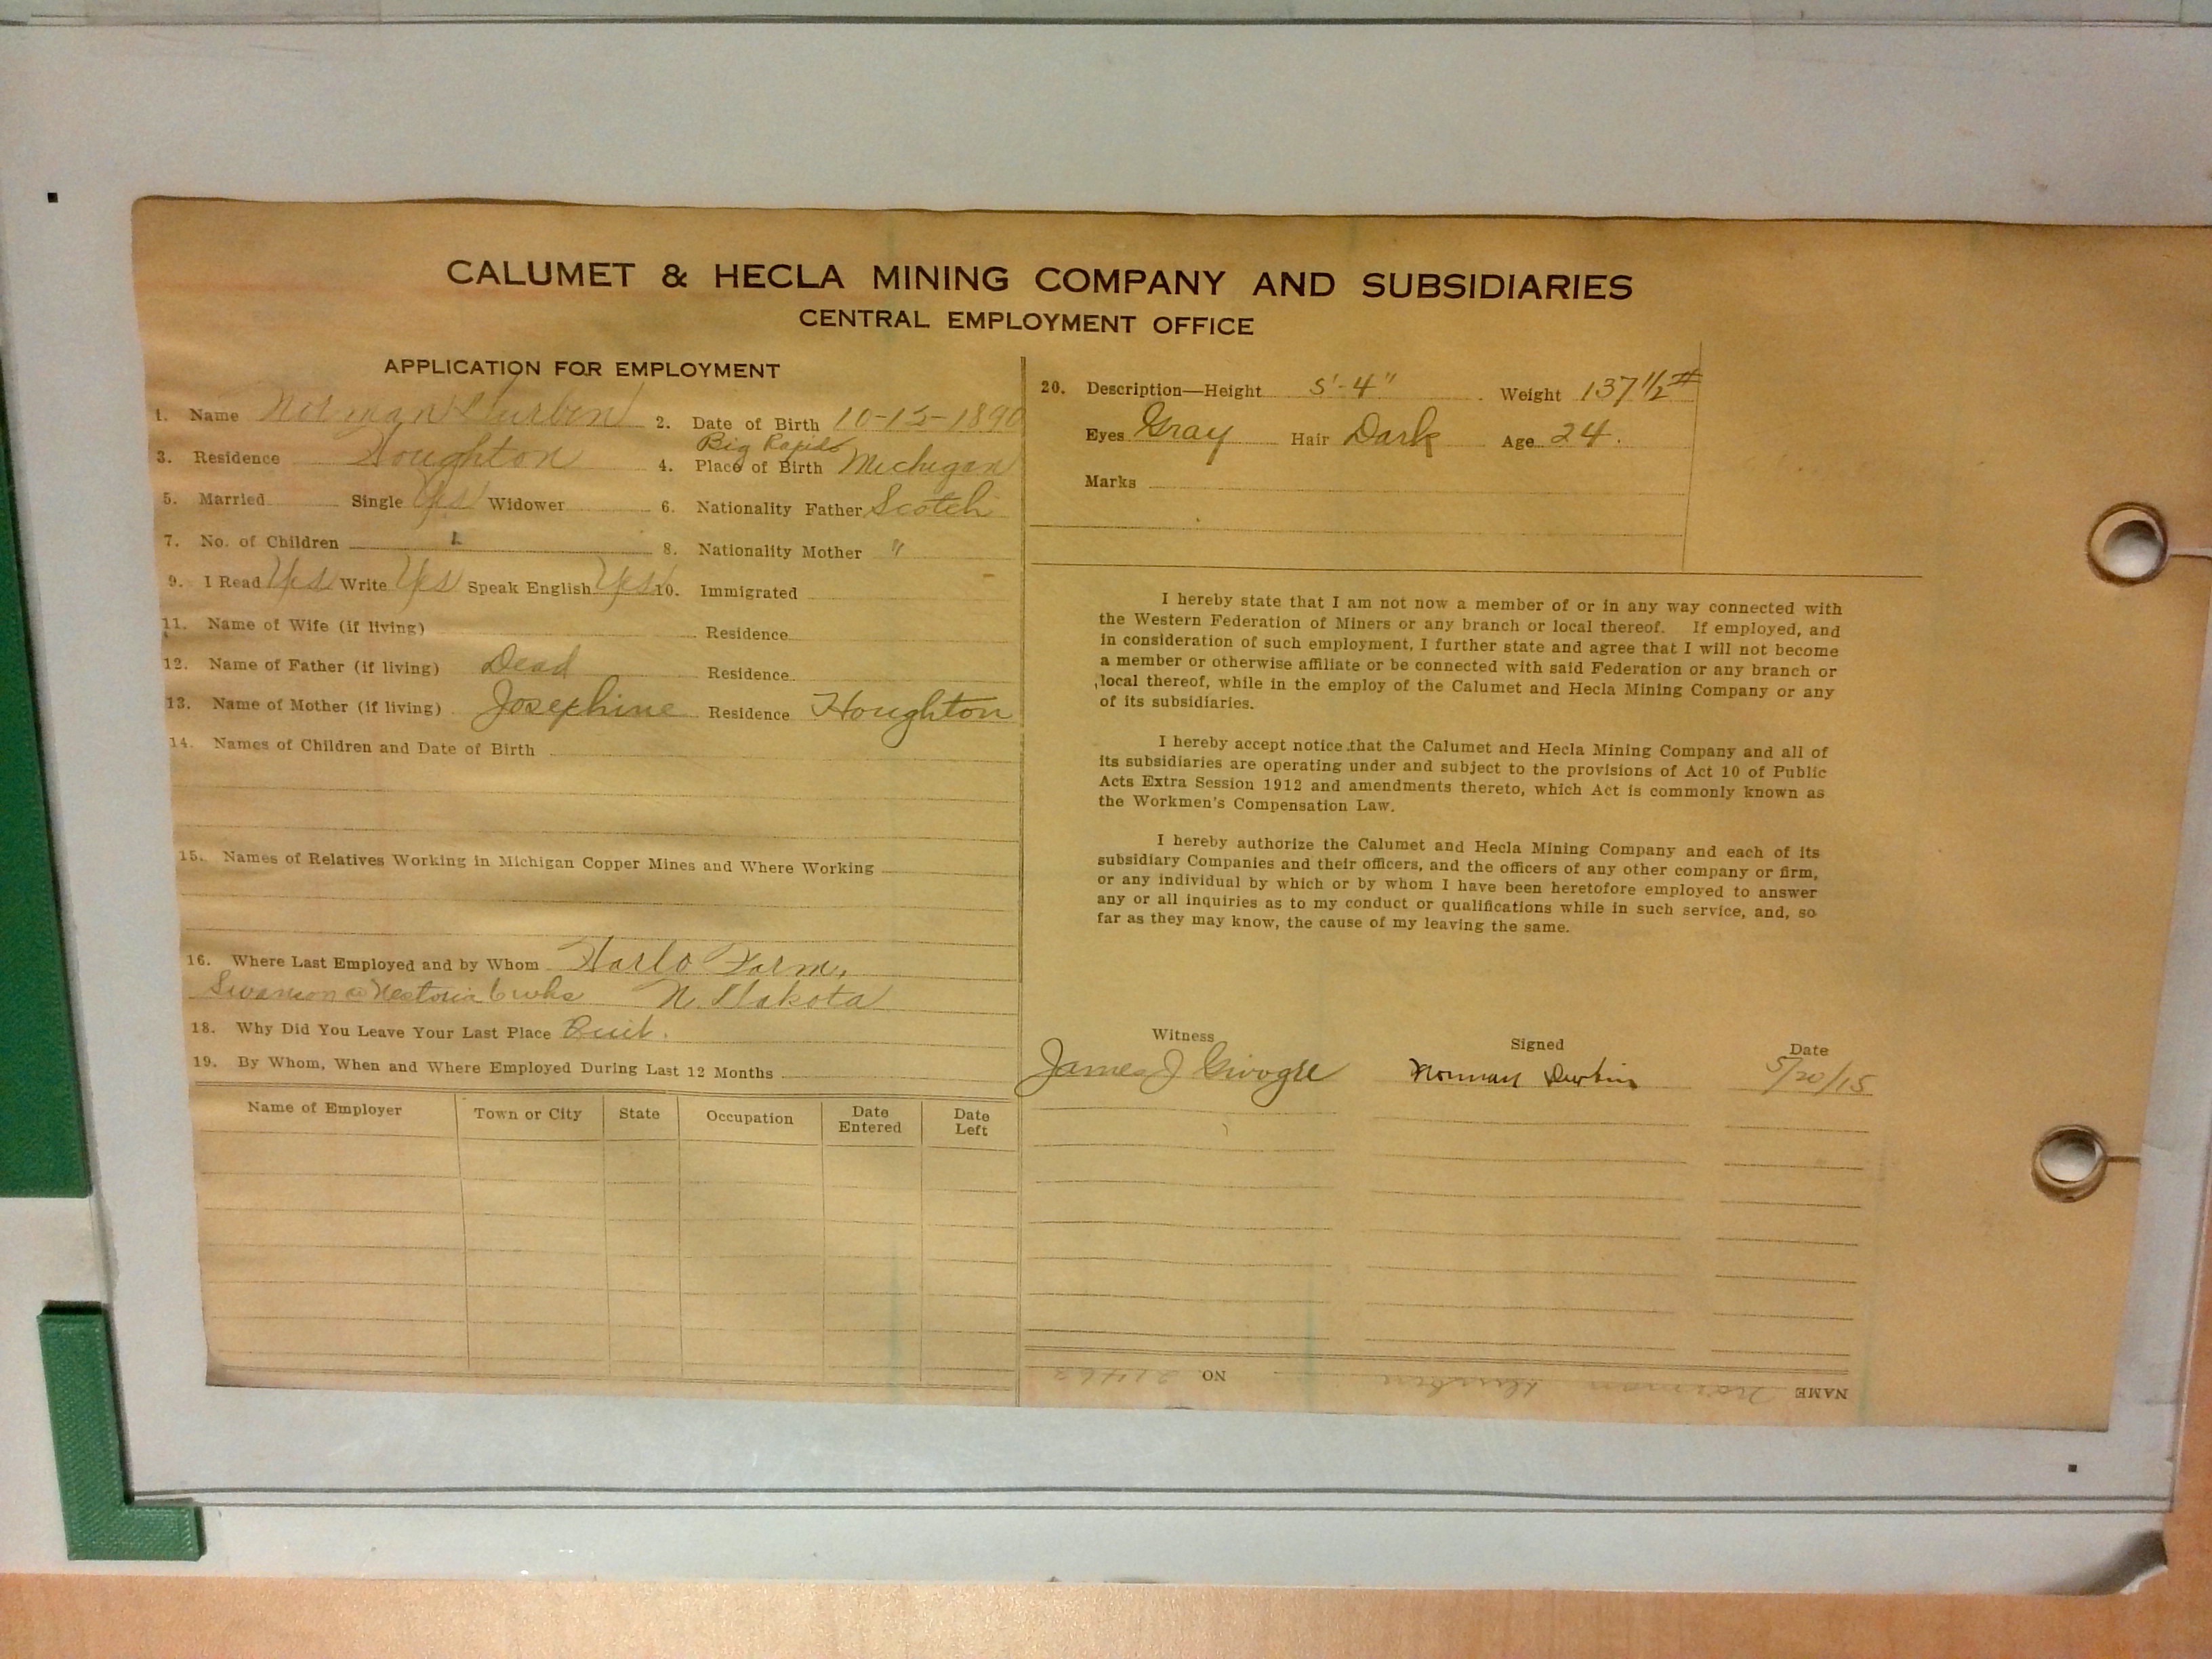 CALUMET & HECLA MINING COMPANY AND SUBSIDIARIES
CENTRAL EMPLOYMENT OFFICE
APPLICATION FOR EMPLOYMENT
1. Name Norman Durbin 2. Date of Birth 10-15-1890
Big Rapids
3. Residence Houghton 4. Place of Birth Michigan
5. Married Single Yes Widower 6. Nationality Father Scotch
7. No. of Children 8. Nationality Mother "
9. I Read Yes Write Yes Speak English Yes 10. Immigrated
11. Name of Wife (if living) Residence
12. Name of Father (if living) Dead Residence
13. Name of Mother (if living) Josephine Residence Houghton
14. Names of Children and Date of Birth
15. Names of Relatives Working in Michigan Copper Mines and Where Working
16. Where Last Employed and by Whom Harlo Farm,
Swanson @ Nestoria 6 wks N. Dakota
18. Why Did You Leave Your Last Place Quit.
19. By Whom, When and Where Employed During Last 12 Months
Name of Employer Town or City State Occupation Date Entered Date Left
20. Description—Height 5'-4" Weight 137 1/2 #
Eyes Gray Hair Dark Age 24.
Marks
I hereby state that I am not now a member of or in any way connected with
the Western Federation of Miners or any branch or local thereof. If employed, and
in consideration of such employment, I further state and agree that I will not become
a member or otherwise affiliate or be connected with said Federation or any branch or
local thereof, while in the employ of the Calumet and Hecla Mining Company or any
of its subsidiaries.
I hereby accept notice that the Calumet and Hecla Mining Company and all of
its subsidiaries are operating under and subject to the provisions of Act 10 of Public
Acts Extra Session 1912 and amendments thereto, which Act is commonly known as
the Workmen's Compensation Law.
I hereby authorize the Calumet and Hecla Mining Company and each of its
subsidiary Companies and their officers, and the officers of any other company or firm,
or any individual by which or by whom I have been heretofore employed to answer
any or all inquiries as to my conduct or qualifications while in such service, and, so
far as they may know, the cause of my leaving the same.
Witness Signed Date
James J Norman Durbin 5/20/15
NAME Norman Durbin NO.